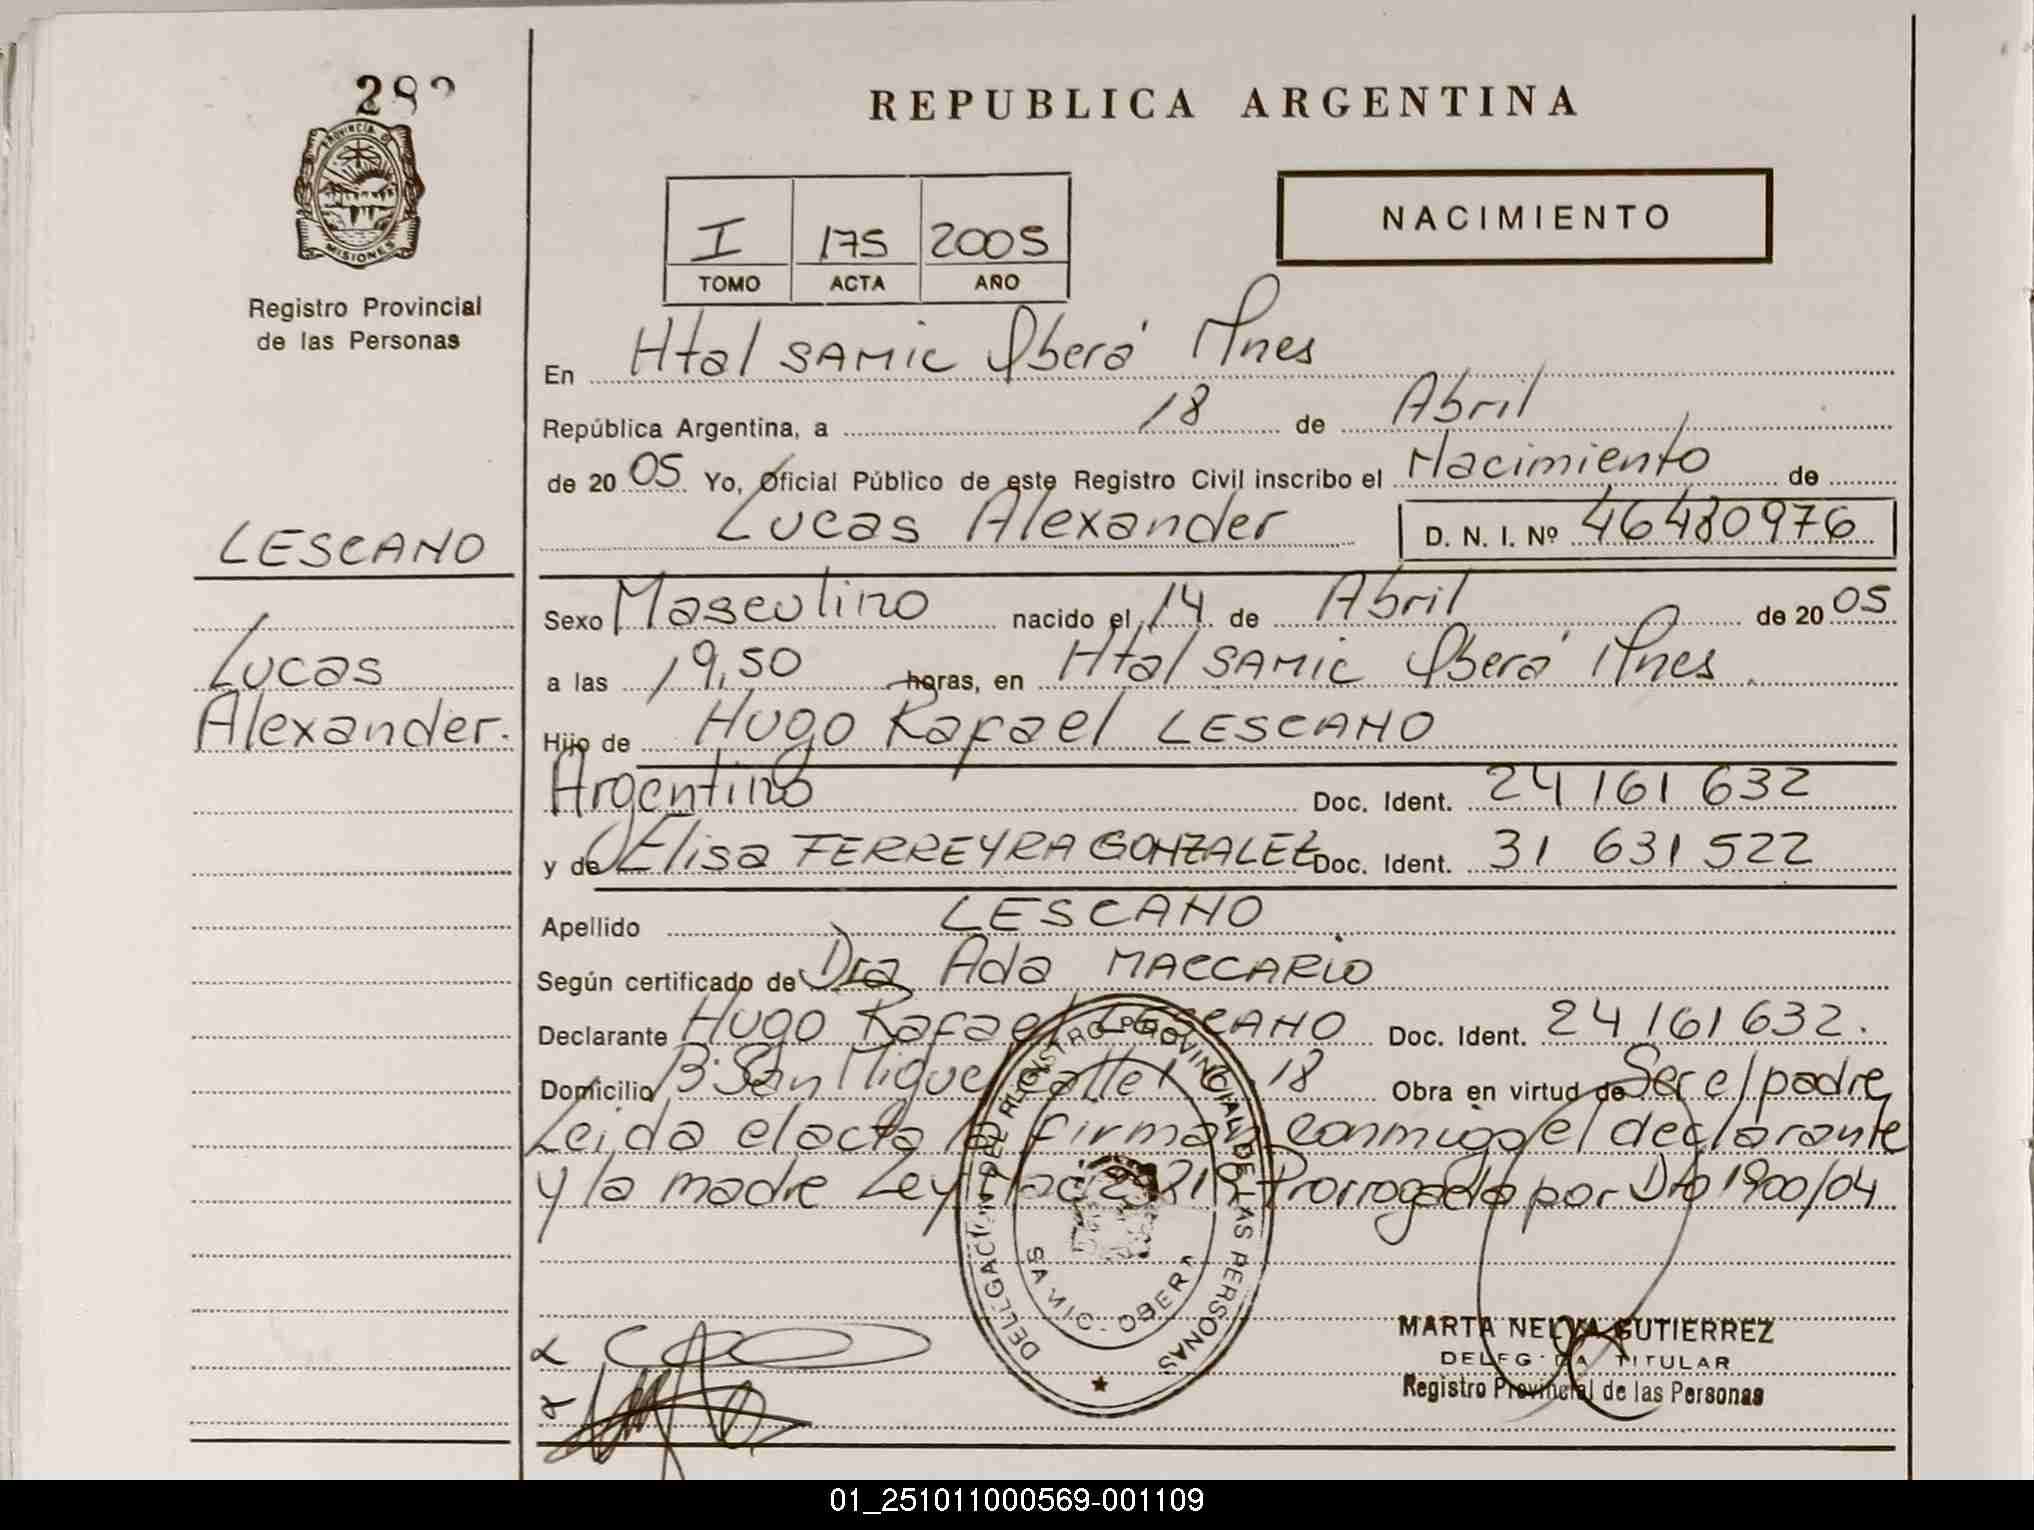 282
PROVINCIA D
MISIONES
Registro Provincial
de las Personas
LESCANO
Lucas
Alexander.
REPUBLICA ARGENTINA
I 175 2005
TOMO ACTA AÑO
NACIMIENTO
En Htal SAMIC Oberá Mnes
República Argentina, a 18 de Abril
de 20 05 Yo, Oficial Público de este Registro Civil inscribo el Nacimiento de
Lucas Alexander D. N. I. Nº 46480976
Sexo Masculino nacido el 14 de Abril de 20 05
a las 19,50 horas, en Htal SAMIC Oberá Mnes
Hijo de Hugo Rafael LESCANO
Argentino Doc. Ident. 24 161 632
y de Elisa FERREYRA GONZALEZ Doc. Ident. 31 631 522
Apellido LESCANO
Según certificado de Dra Ada MACCARIO
Declarante Hugo Rafael LESCANO Doc. Ident. 24 161 632.
Domicilio B: San Miguel Calle 1 18 Obra en virtud de Ser el padre
Leida el acta la firman conmigo el declarante
y la madre Ley Prorrogada por Dto 1900/04
DELEGACION DEL REGISTRO PROVINCIAL DE LAS PERSONAS
SAMIC - OBERA
MARTA NELVA GUTIERREZ
DELEGADA TITULAR
Registro Provincial de las Personas
01_251011000569-001109